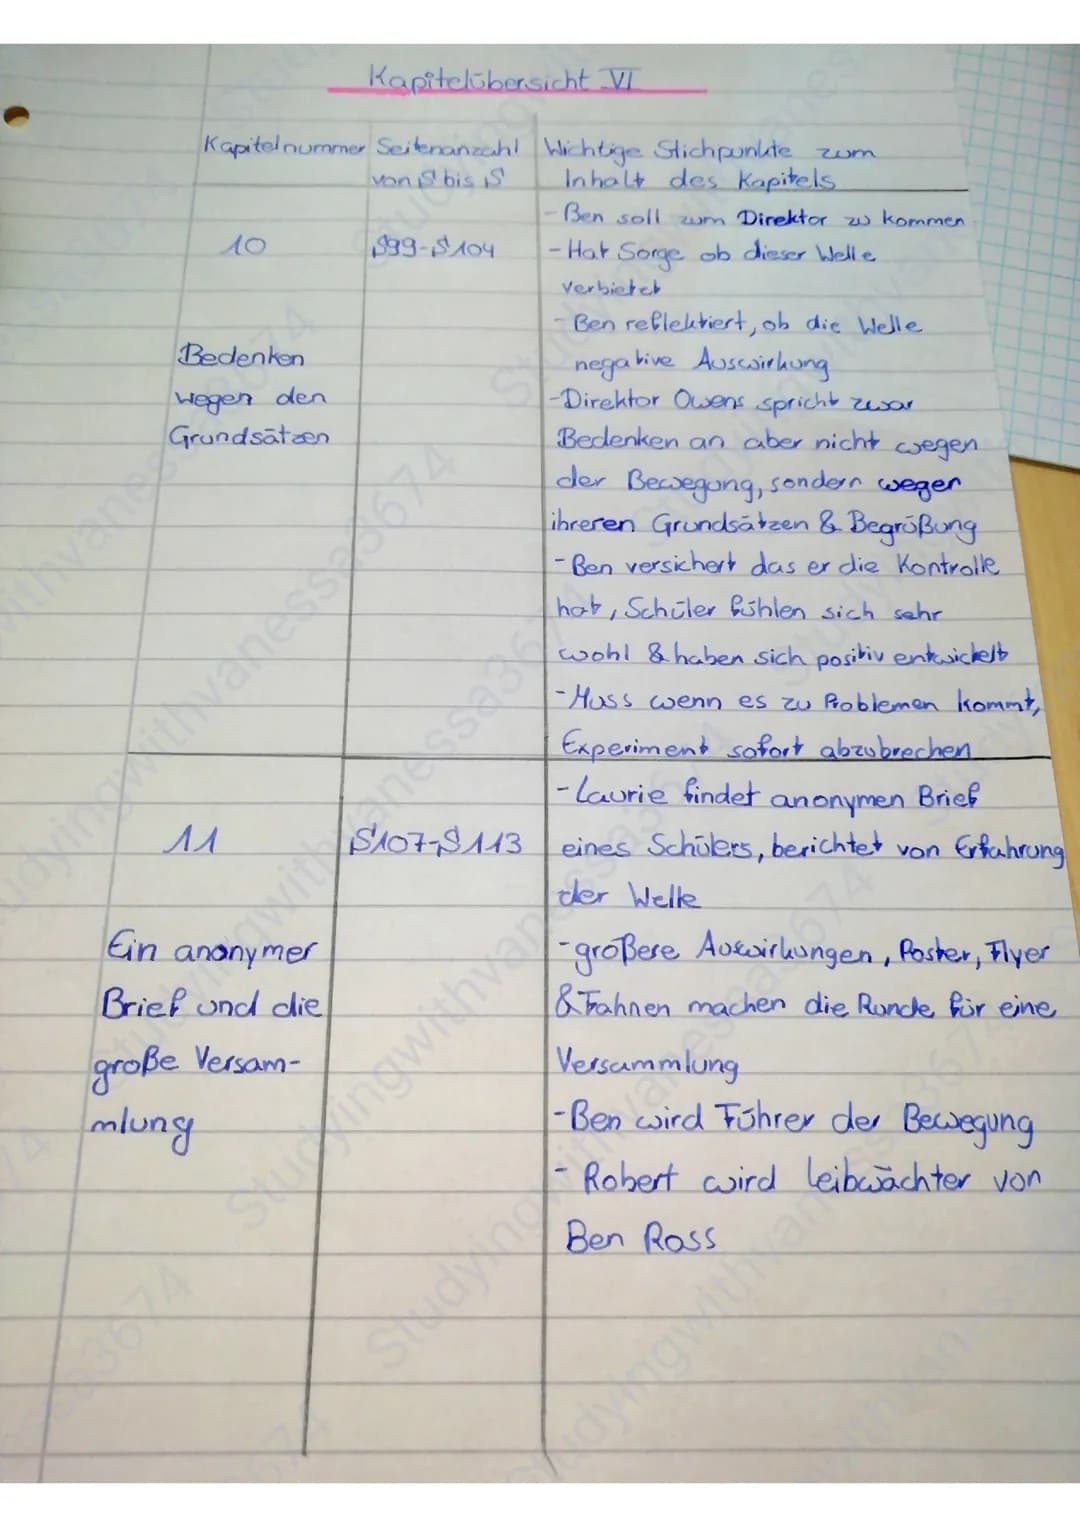 Kapitelübersicht VI
Kapitelnummer Seitenanzahl Wichtige Stichpunkte zum
von S bis S Inhalt des Kapitels
- Ben soll zum Direktor zu kommen
10 S99-S104 - Hat Sorge ob dieser Welle
verbietet
- Ben reflektiert, ob die Welle
Bedenken negative Auswirkung
wegen den - Direktor Owens spricht zwar
Grundsätzen Bedenken an aber nicht wegen
der Bewegung, sondern wegen
ihreren Grundsätzen & Begrüßung
- Ben versichert das er die Kontrolle
hat, Schüler fühlen sich sehr
wohl & haben sich positiv entwickelt
- Muss wenn es zu Problemen kommt,
Experiment sofort abzubrechen
- Laurie findet anonymen Brief
11 S107-S113 eines Schülers, berichtet von Erfahrung
der Welle
Ein anonymer - größere Auswirkungen, Poster, Flyer
Brief und die & Fahnen machen die Runde für eine
große Versam- Versammlung
mlung - Ben wird Führer der Bewegung
- Robert wird Leibwächter von
Ben Ross
Studyingwithvanessa3674